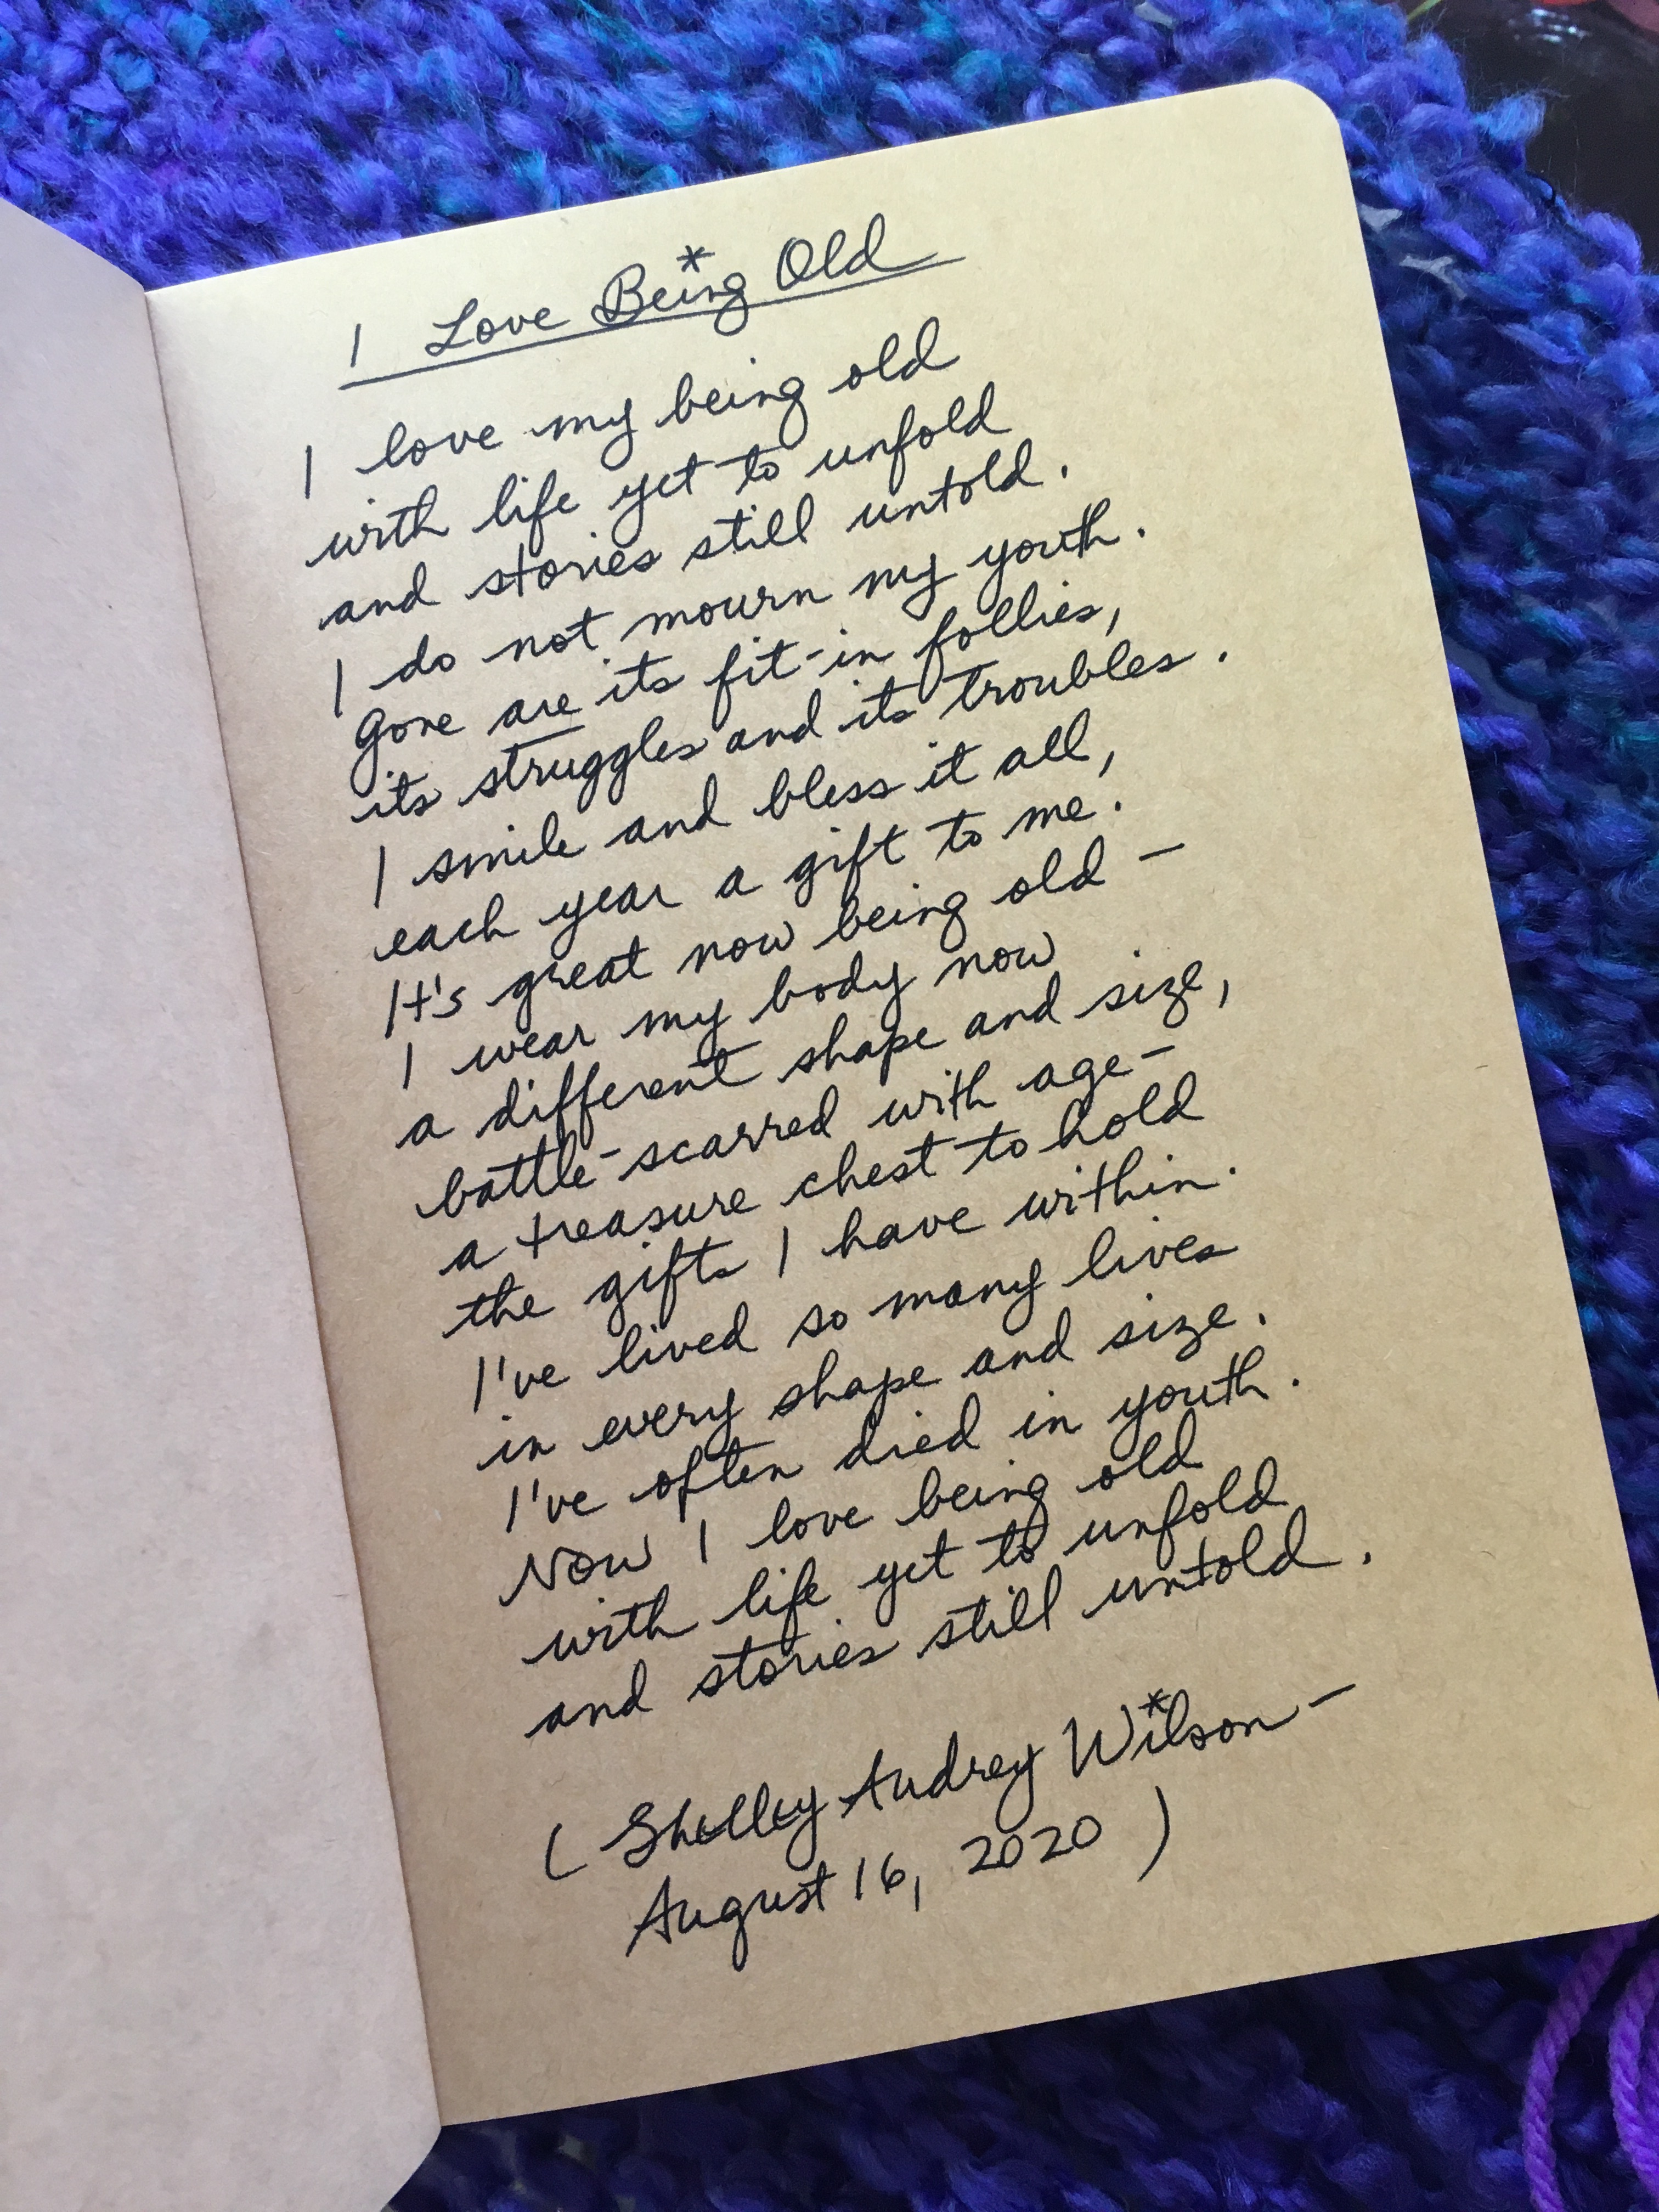 I Love Being Old
I love my being old
with life yet to unfold
and stories still untold.
I do not mourn my youth.
Gone are its fit-in follies,
its struggles and its troubles.
I smile and bless it all,
each year a gift to me.
It's great now being old –
I wear my body now
a different shape and size,
battle-scarred with age –
a treasure chest to hold
the gifts I have within.
I've lived so many lives
in every shape and size.
I've often died in youth.
Now I love being old
with life yet to unfold
and stories still untold.
(Shelley Audrey Wilson –
August 16, 2020)